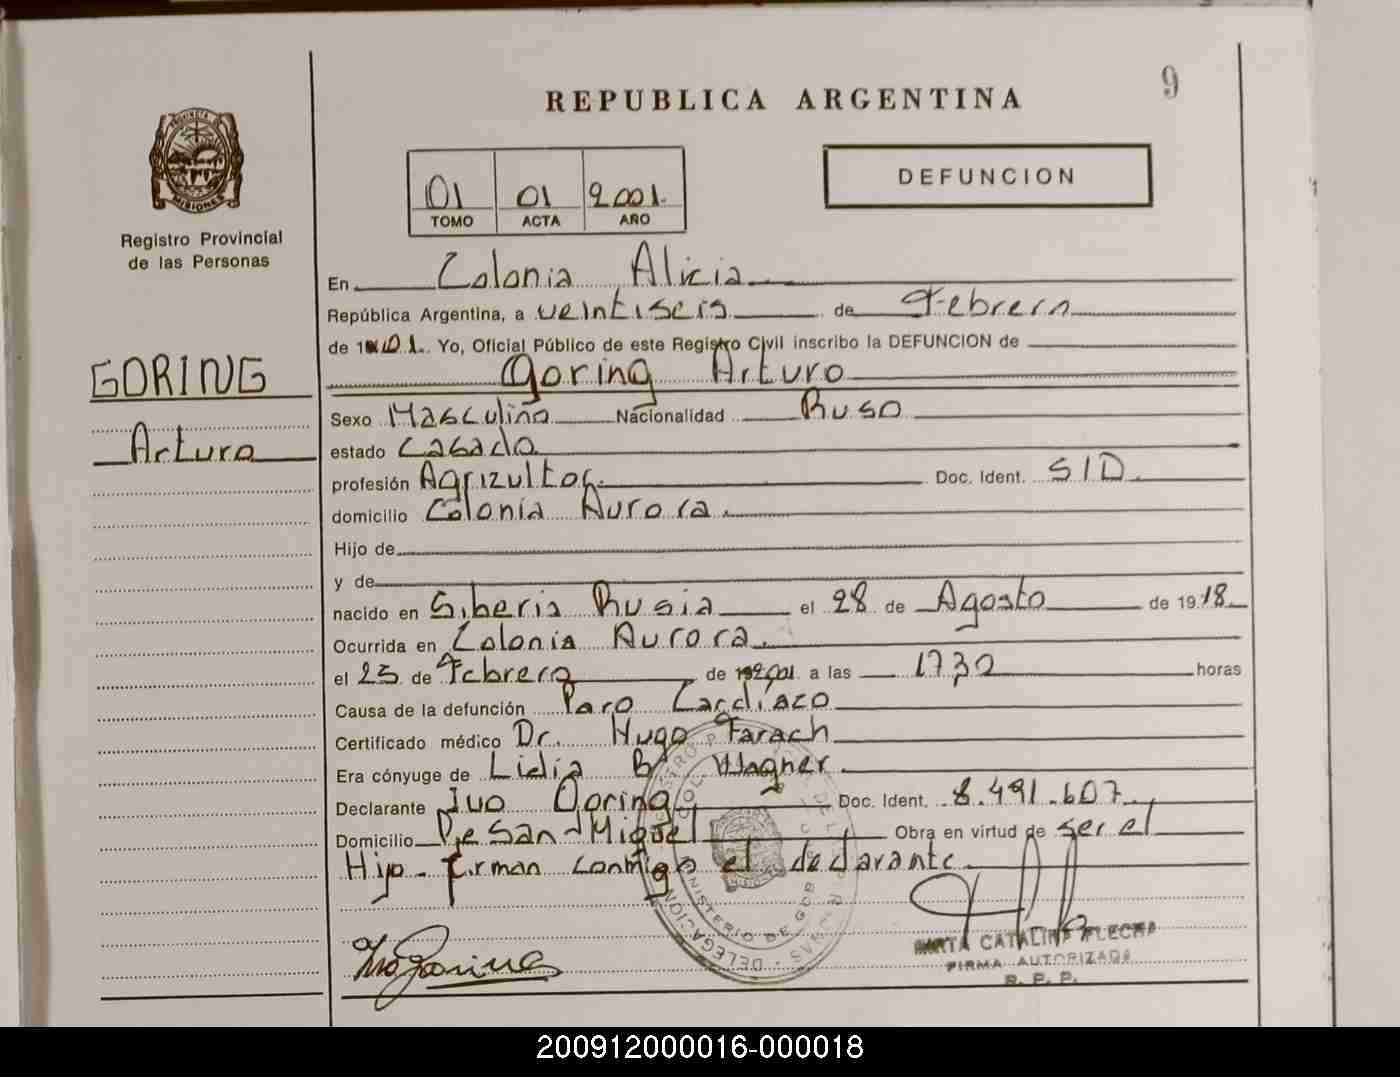 9
REPUBLICA ARGENTINA
PROVINCIA DE
MISIONES
Registro Provincial
de las Personas
01 01 2001.
TOMO ACTA AÑO
DEFUNCION
En Colonia Alicia
República Argentina, a veintiseis de Febrero
de Yo, Oficial Público de este Registro Civil inscribo la DEFUNCION de
GORING
Goring Arturo
Arturo
Sexo Masculino Nacionalidad Ruso
estado Casado
profesión Agrizultor. Doc. Ident. S/D.
domicilio Colonia Aurora.
Hijo de
y de
nacido en Siberia Rusia el 28 de Agosto de 1918
Ocurrida en Colonia Aurora.
el 25 de Febrero de 2001 a las 17,30 horas
Causa de la defunción Paro Cardíaco
Certificado médico Dr. Hugo Farach
Era cónyuge de Lidia B Wagner
Declarante Ivo Goring Doc. Ident. 8.491.607
Domicilio Pje San Miguel Obra en virtud de ser el
Hijo - Firman conmigo el declarante
Ivo Goring
CATALINA FLECHA
FIRMA AUTORIZADA
R. P. P.
200912000016-000018